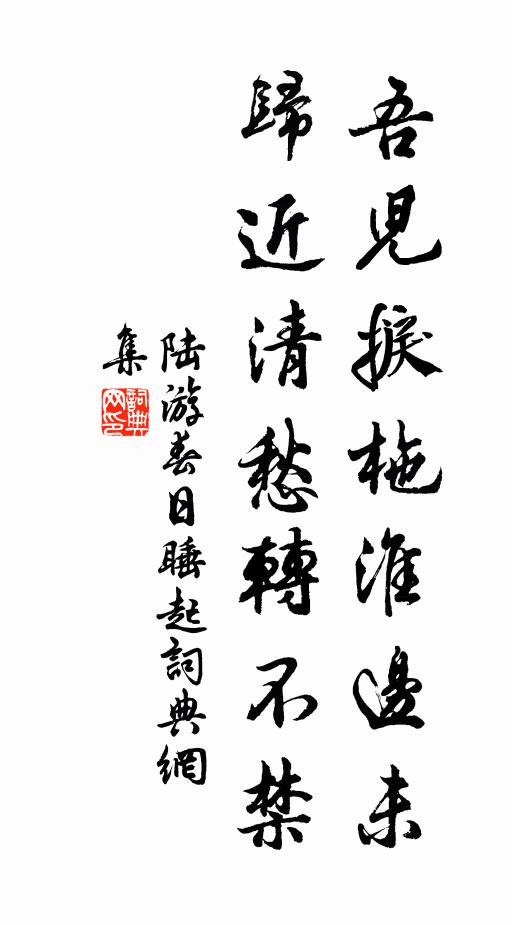 吾兒捩柂淮邊未
歸近清愁轉不禁
陸游春日睡起詞典網
集
詞典
网印